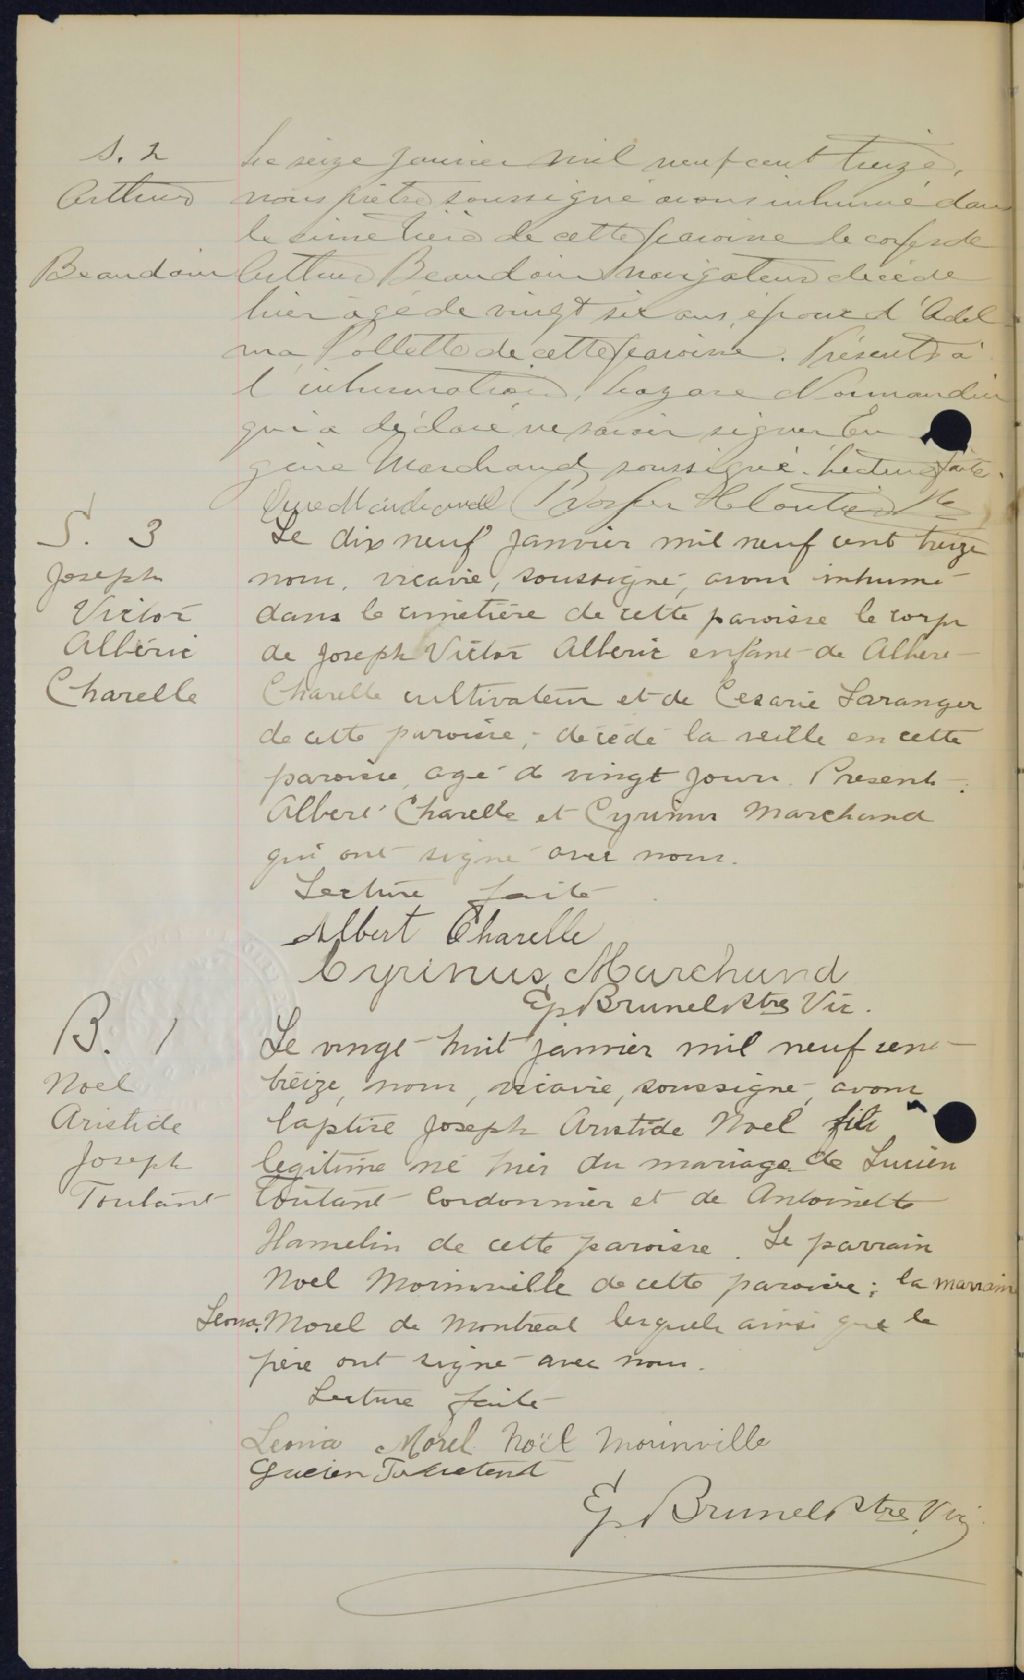 S. 2
Arthur
Beaudoin
Le seize janvier mil neuf cent treize,
nous prêtre soussigné avons inhumé dans
le simetière de cette paroisse le corps de
Arthur Beaudoin navigateur décédé
hier âgé de vingt six ans, époux d'Adel
ma Collette de cette paroisse. Présents à
l'inhumation, Lazare Normandin
qui a déclaré ne savoir signer Eu
gène Marchand soussigné. Lecture faite.
Marchand Prosper H Cloutier
S. 3
Joseph
Victor
Albéric
Charelle
Le dix neuf janvier mil neuf cent treize
nous, vicaire, soussigné, avons inhumé
dans le cimetière de cette paroisse le corps
de Joseph Victor Albéric enfant de Albert
Charelle cultivateur et de Cesarie Laranger
de cette paroisse, décédé la veille en cette
paroisse, agé de vingt jours. Present:
Albert Charelle et Cyrinus Marchand
qui ont signé avec nous.
Lecture faite
Albert Charelle
Cyrinus Marchand
Ep. Brunel Ptre Vic.
B. 1
Noel
Aristide
Joseph
Toutant
Le vingt huit janvier mil neuf cent
treize, nous, vicaire, soussigné, avons
baptisé Joseph Aristide Noel fils
legitime né hier du mariage de Lucien
Toutant Cordonnier et de Antoinette
Hamelin de cette paroisse. Le parrain
Noel Morinville de cette paroisse; la marraine
Leona Morel de Montreal lesquels ainsi que le
père ont signé avec nous.
Lecture faite
Leona Morel Noël Morinville
Lucien Toutant
Ep. Brunel Ptre Vic.